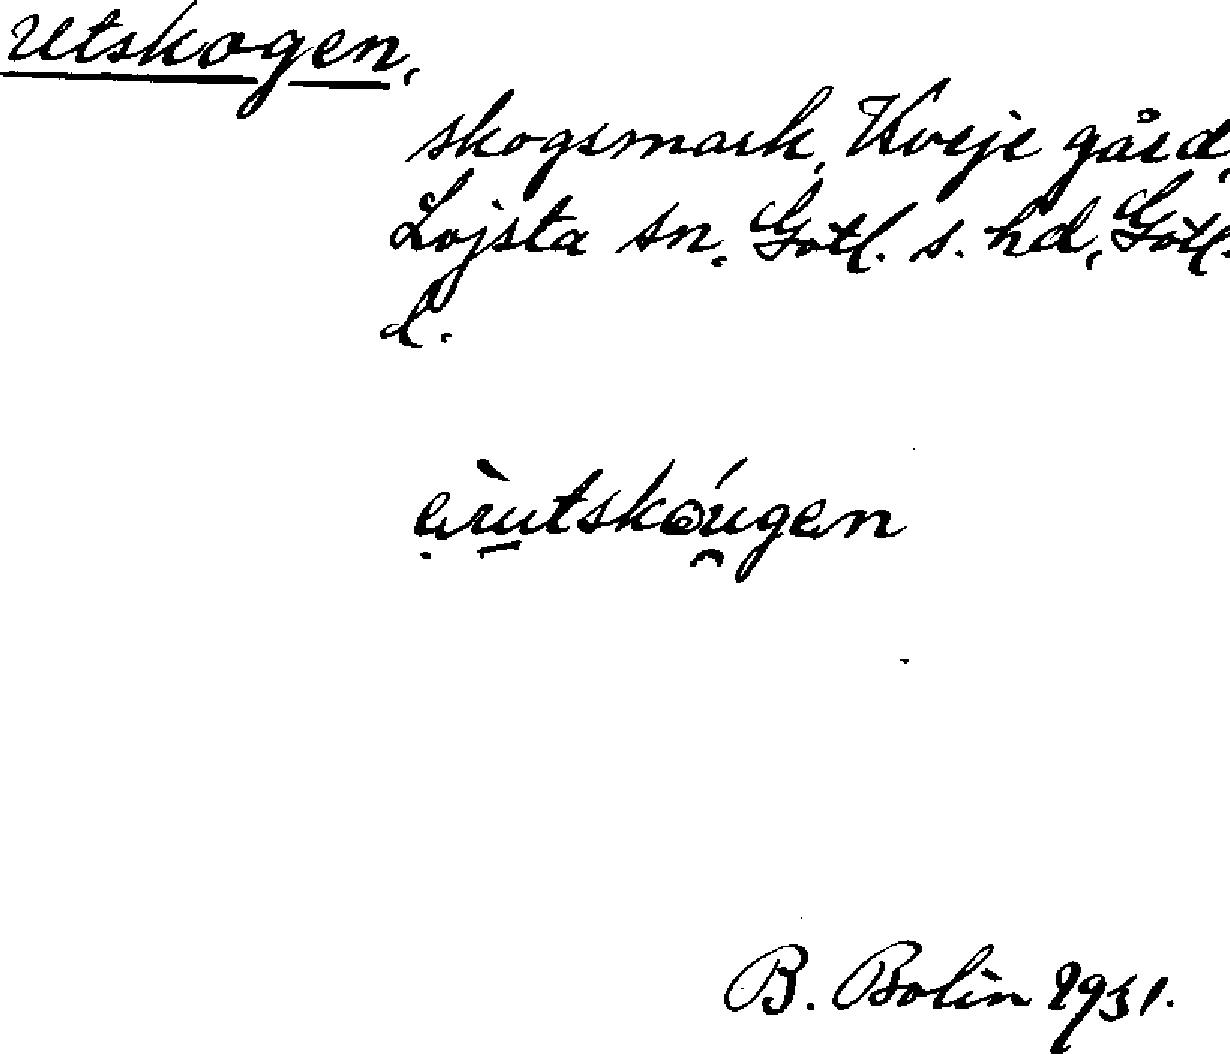 Utskogen.
skogsmark, Kveje gård,
Lojsta sn. Gotl. s. hd, Gotl.
l.
B. Bolin 1931.